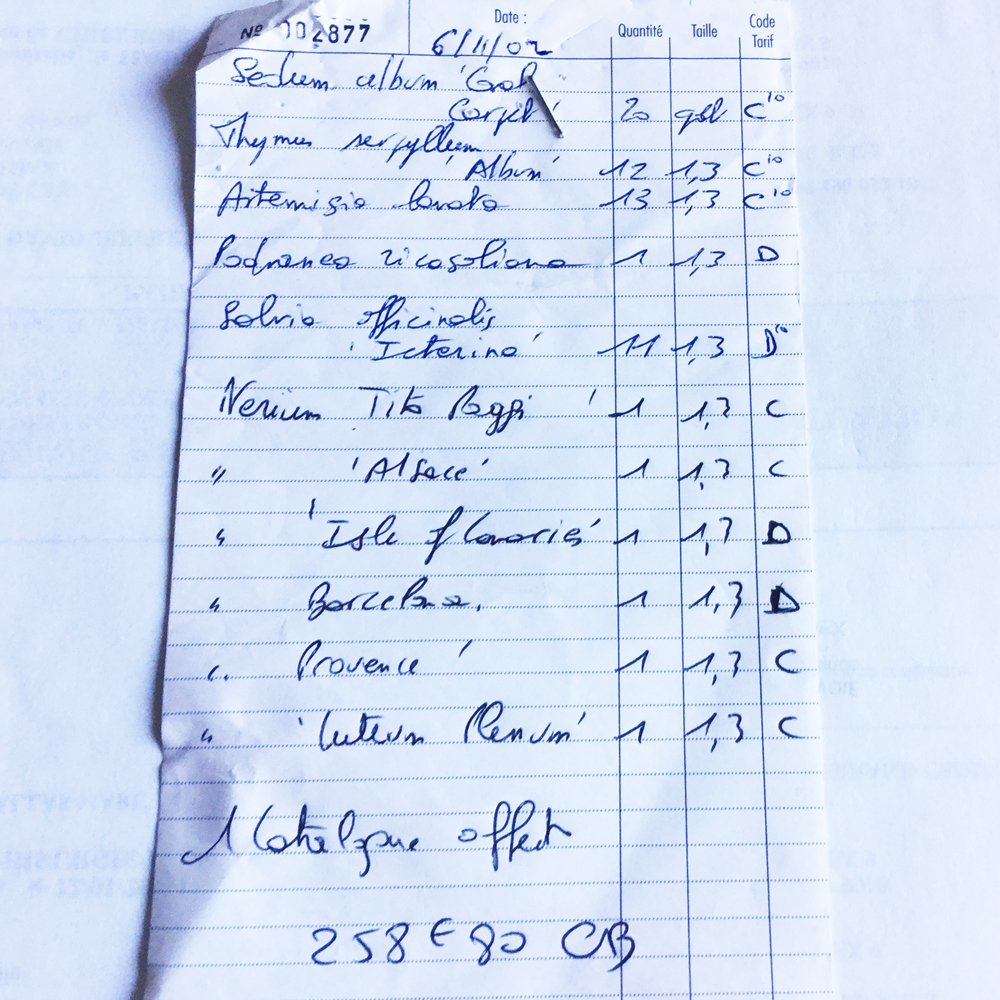 Nº 002877
Date :
6/11/02
Quantité Taille Code Tarif
Sedum album 'Coral
Carpet' 20 god C¹⁰
Thymus serpyllum
'Album' 12 1,3 C¹⁰
Artemisia lanata 13 1,3 C¹⁰
Podranea ricasoliana 1 1,3 D
Salvia officinalis
'Icterina' 11 1,3 D¹⁰
Nerium Tito Poggi ' 1 1,3 C
" 'Alsace' 1 1,3 C
" 'Isle of Canaries' 1 1,3 D
" Barcelona. 1 1,3 D
" Provence ' 1 1,3 C
" 'Luteum Plenum' 1 1,3 C
1 Catalogue offert
258 € 80 CB